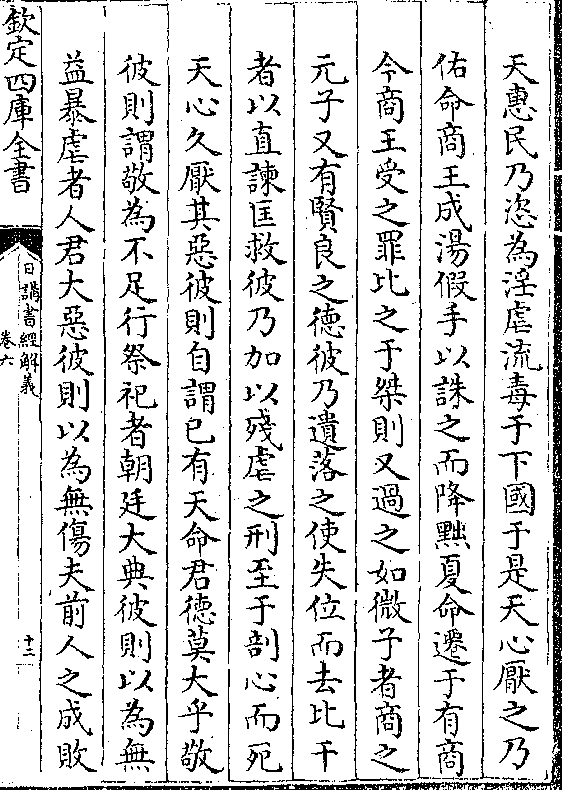 天惠民乃恣為淫虐流毒于下國于是天心厭之乃
佑命商王成湯假手以誅之而降黜夏命遷于有商
今商王受之罪比之于桀則又過之如微子者商之
元子又有賢良之德彼乃遺落之使失位而去比干
者以直諫匡救彼乃加以殘虐之刑至于剖心而死
天心久厭其惡彼則自謂已有天命君德莫大乎敬
彼則謂敬為不足行祭祀者朝廷大典彼則以為無
益暴虐者人君大惡彼則以為無傷夫前人之成敗
欽定四庫全書
日講書經解義
卷六
十二